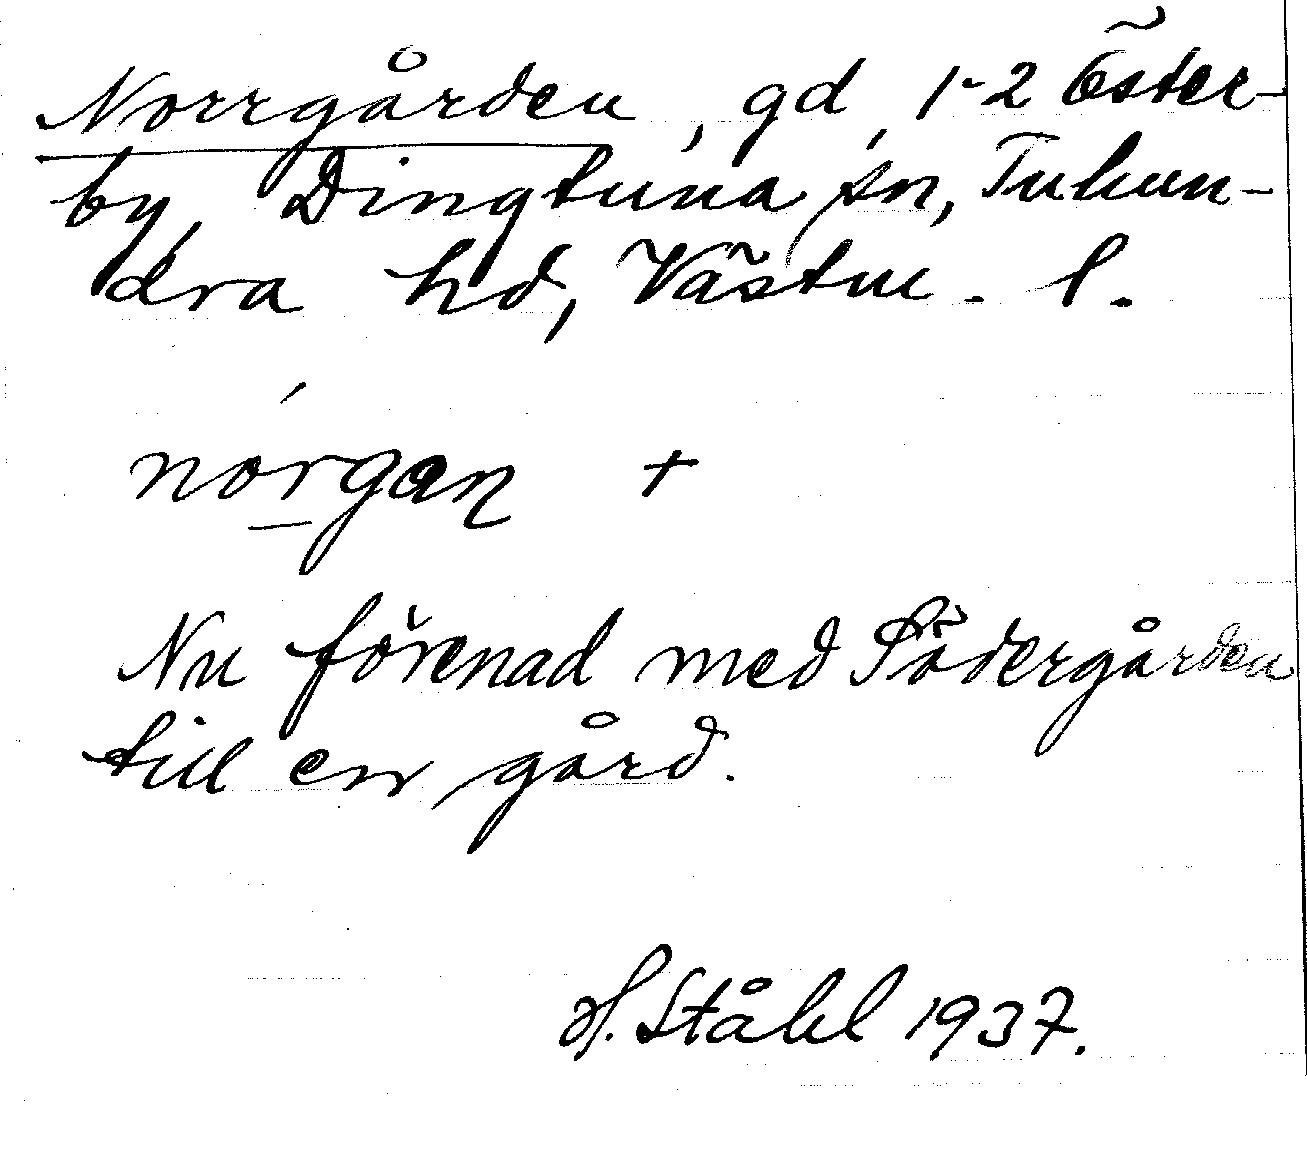 Norrgården, gd, 1-2 Öster-
by, Dingtuna sn, Tuhun-
dra hd, Västm. l.
nórgan +
Nu förenad med Södergården
till en gård.
H. Ståhl 1937.